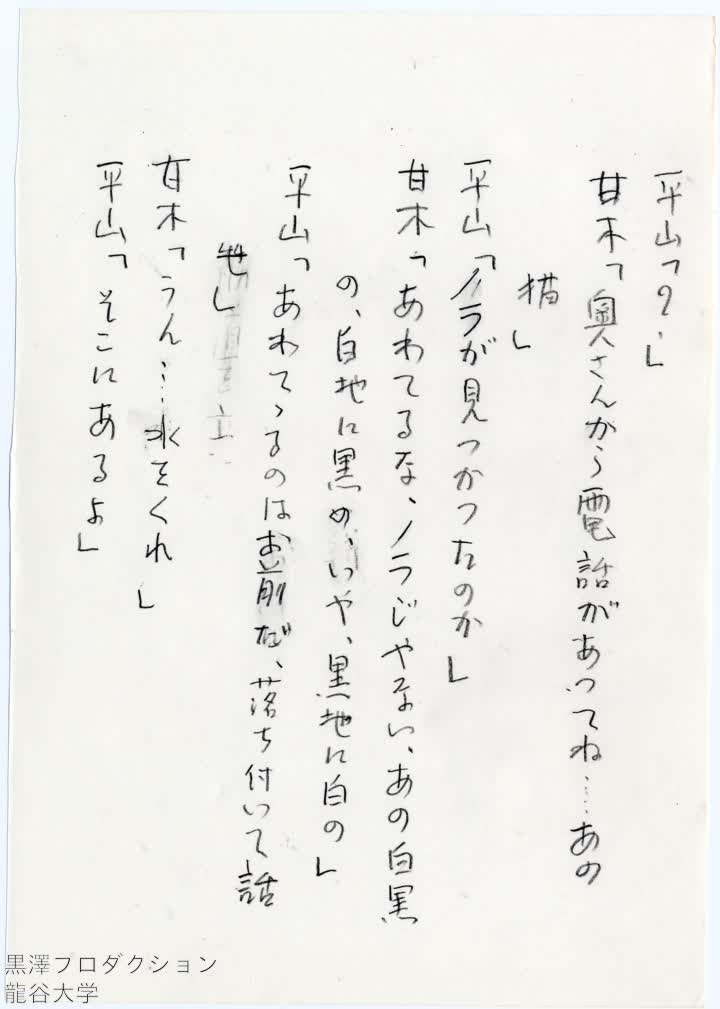 平山「?」
甘木「奥さんから電話があつてね…あの
猫」
平山「ノラが見つかつたのか」
甘木「あわてるな、ノラじやない、あの白黒
の、白地に黒め、いや、黒地に白の」
平山「あわてゝるのはお前だ、落ち付いて話
せ」
甘木「うん…水をくれ」
平山「そこにあるよ」
黒澤プロダクション
龍谷大学